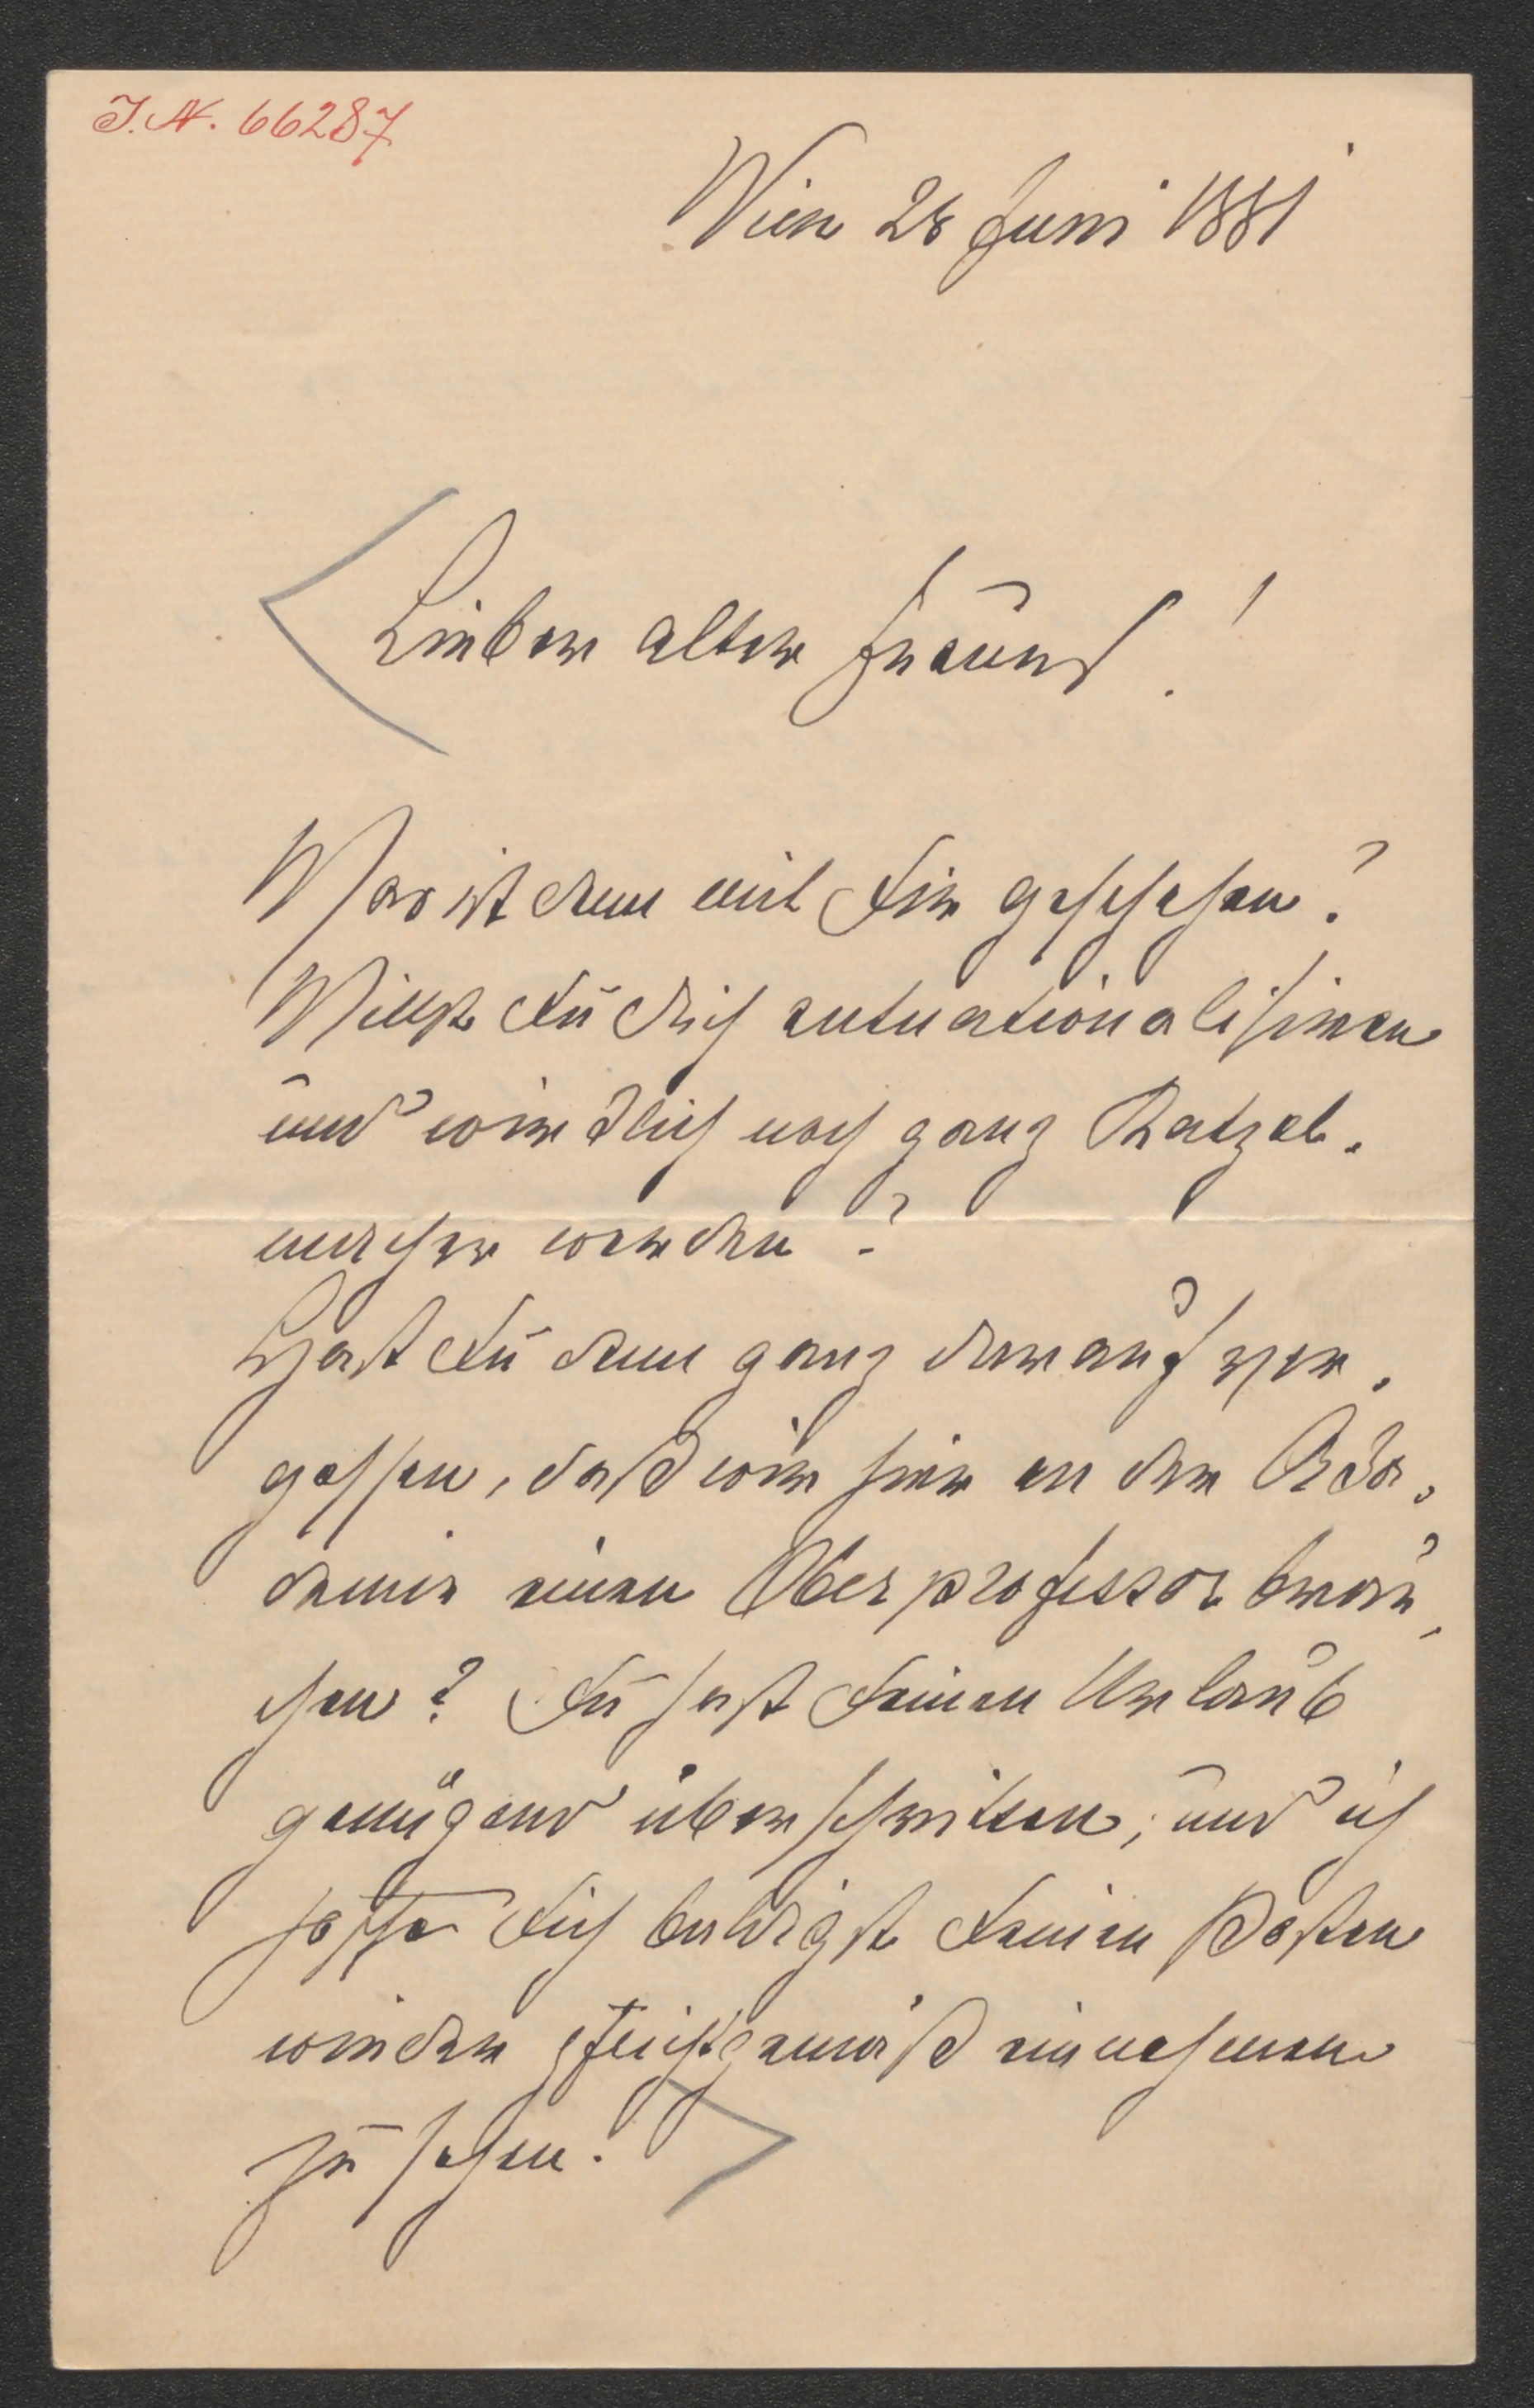 J. N. 66287
Wien 28 Juni 1881
Lieber alter Freund!
Was ist denn mit Dir geschehen?
Willst Du Dich entnationalisiren
und wirklich noch ganz Katzel-
macher werden?
Hast Du denn ganz darauf ver-
gessen, daß wir hier an der Aka-
demie einen Oberprofessor brau-
chen? Du hast Deinen Urlaub
genügend überschritten, und ich
hoffe Dich baldigst Deinen Posten
wieder pflichtgemäß einnehmen
zu sehen.